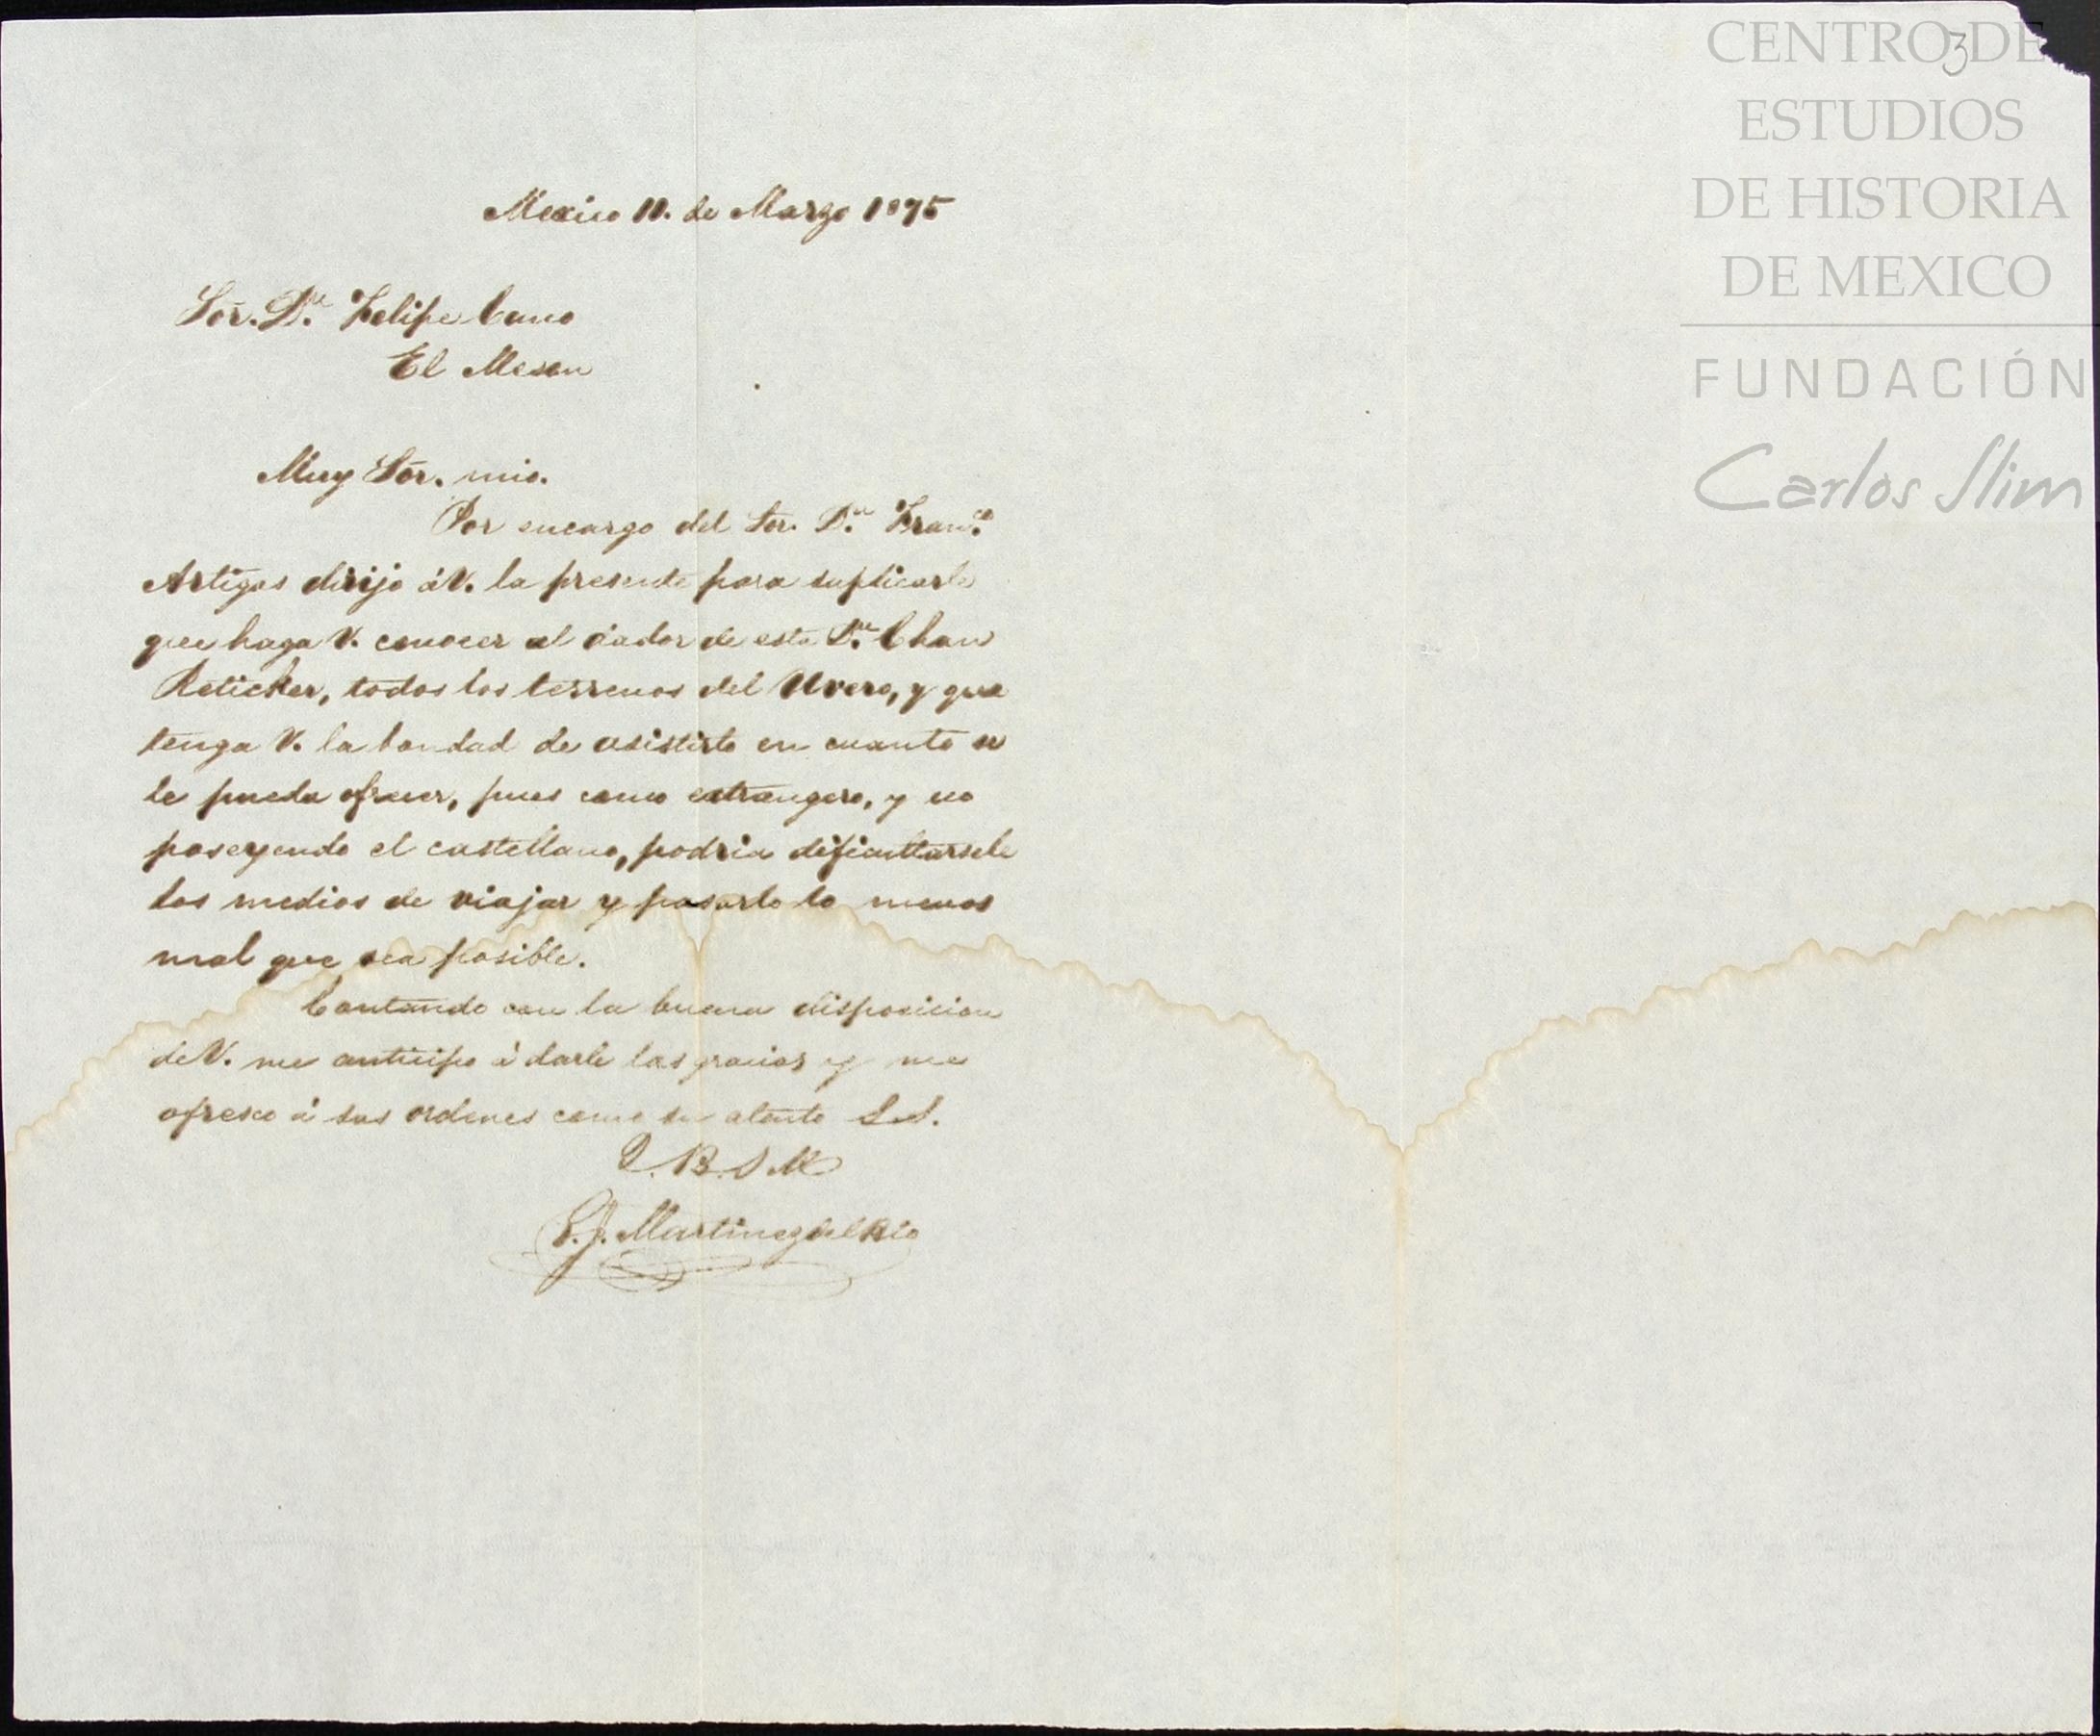 Mexico 10. de Marzo 1895
Sor. Dn. Felipe Cano
El Meson
Muy Sor. mio.
Por encargo del Sor. Dn. Franco.
Artigas dirijo á V. la presente para suplicarle
que haga V. conocer al dador de esta Dn. Chan
Reticker, todos los terrenos del Uvero, y que
tenga V. la bondad de asistirle en cuanto se
le pueda ofrecer, pues como extrangero, y no
poseyendo el castellano, podria dificultarsele
los medios de viajar y pasarlo lo menos
mal que sea posible.
Contando con la buena disposicion
de V. me anticipo á darle las gracias y me
ofresco á sus ordenes como su atento S.S.
Q.B.S.M
P.J. Martinez del Rio
3
CENTRO DE
ESTUDIOS
DE HISTORIA
DE MEXICO
FUNDACIÓN
Carlos Slim